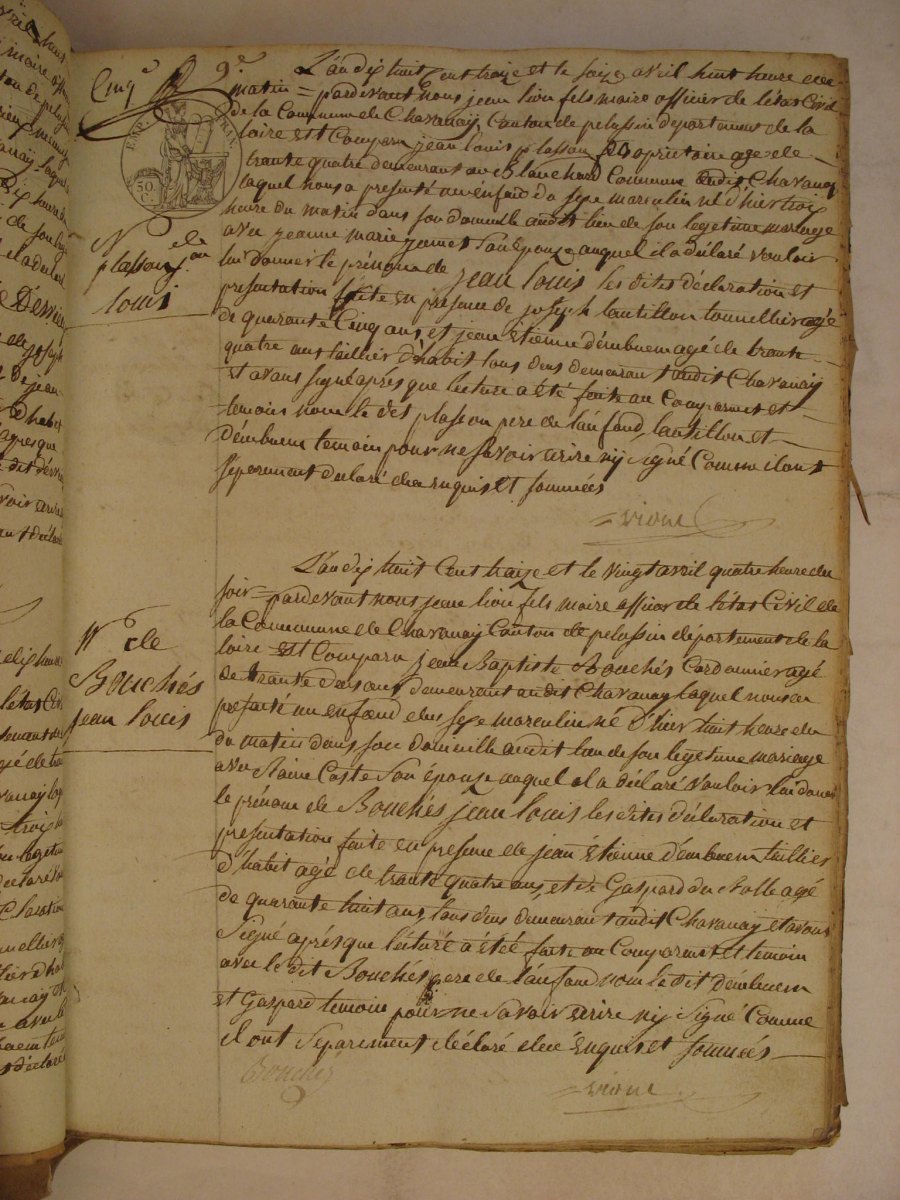 Cinq 9e
EMP. FRAN.
50.
C.
N de
plasson jean
louis
L'an dix huit Cent traize et le saize avril huit heure de
matin = pardevant nous jean lion fils maire officier de l'état Civil
de la Commune de Chavanay, Canton de pelussin département de la
loire est Comparu jean louis plasson propriétaire agé de
trante quatre demeurant au Blanchard Commune dudit Chavanay
laquel nous a presenté un enfand du sexe masculin né d'hier trois
heure du matin dans son domicille audit lieu de son legetime mariage
avec jeanne marie jamet son Epouze auquel il a déclaré vouloir
lui donner le prénom de jean louis les dites déclaration et
presentation faite en presence de joseph lantillon tonnellier agé
de quarante Cinq ans, et jean Etienne démbuem agé de trante
quatre ans taillier d'habit tous deux demeurant audit Chavanay
Et avons signé aprés que lecture a été faite au Comparant et
temoins nom le dit plasson pere de l'anfand, lantillon et
démbuem temoin pour ne savoir ecrire nij signé Comme ils ont
séperement déclaré de enquis et sommées
vione
L'an dix huit Cent traize et le vingt avril quatre heure du
soir = pardevant nous jean lion fils maire officier de l'état Civil de
la Commune de Chavanay Canton de pelussin département de la
loire est Comparu jean Baptiste Bouchés Cordonnier agé
de trante deux ans demeurant audit Chavanay laquel nous a
presenté un enfand du sexe masculin né d'hier huit heure du
du matin dans son domicille audit lieu de son legetime mariage
avec Raine Caste son épouse auquel il a déclaré vouloir lui donner
le prénom de Bouchés jean louis les dites déclaration et
presentation faite en presence de jean Étienne démbuem taillier
d'habit agé de trante quatre ans, et de Gaspard du Nolle agé
de quarante huit ans tous deux demeurant audit Chavanay et avons
Signé aprés que lécture a étéé faite au Comparant et temoin
avec le dit Bouchés pere de l'anfand nom le dit démbuem
et Gaspard temoin pour ne savoir ecrire nij Signé Comme
il ont séparement déclaré de enquis et sommées
N de
Bouchés
jean louis
Bouchez
vione